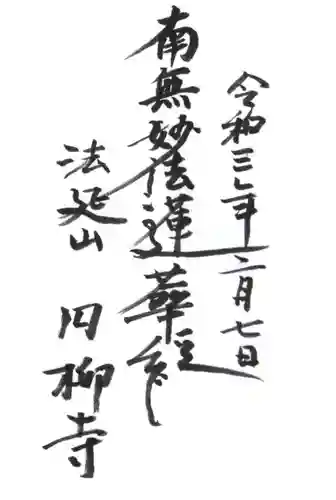 令和三年二月七日
南無妙法蓮華経
法延山 円柳寺